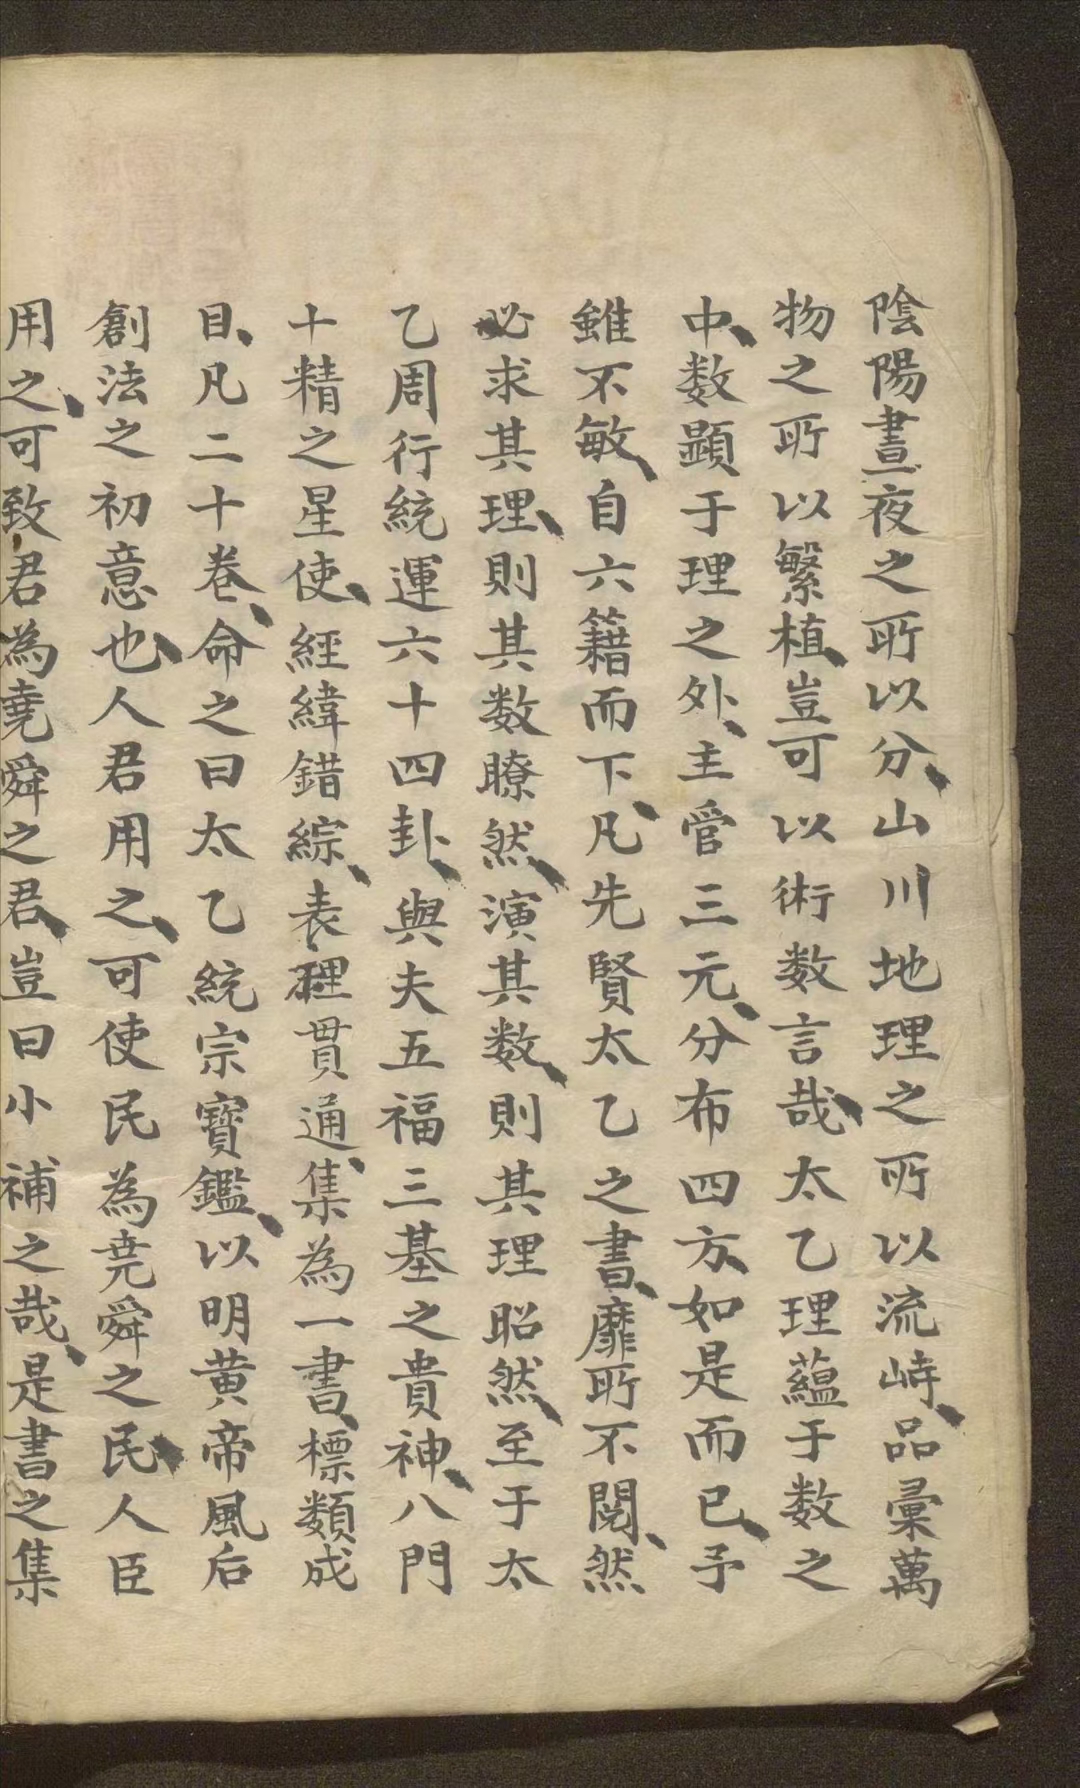 陰陽晝夜之所以分、山川地理之所以流峙、品彙萬
物之所以繁植、豈可以術数言哉、太乙理蘊于数之
中、数顕于理之外、主管三元、分布四方、如是而已、予
雖不敏、自六籍而下、凡先賢太乙之書、靡所不閱、然
必求其理、則其数瞭然、演其数、則其理昭然、至于太
乙周行統運六十四卦、與夫五福三基之貴神、八門
十精之星使、經緯錯綜、表裡貫通、集為一書、標類成
目、凡二十卷、命之曰太乙統宗寶鑑、以明黄帝風后
創法之初意也、人君用之、可使民為堯舜之民、人臣
用之、可致君為堯舜之君、豈曰小補之哉、是書之集